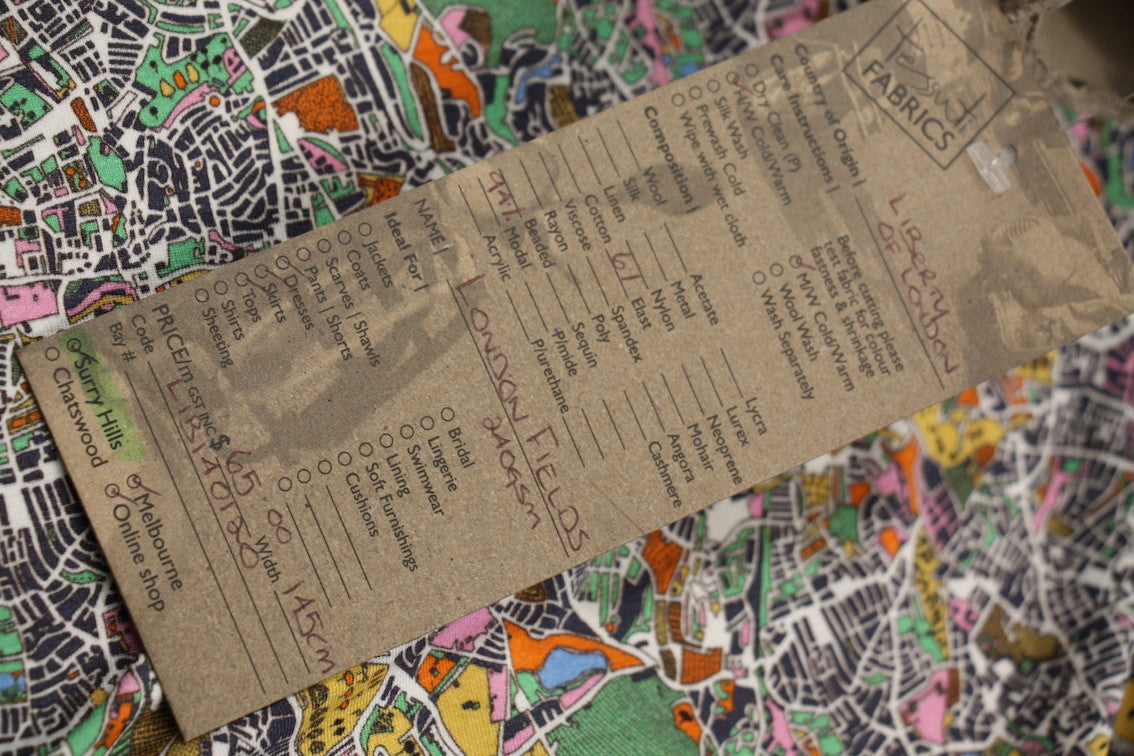 Tessuti
FABRICS
Country of Origin | LIBERTY
OF LONDON
Care Instructions |
Before cutting please
test fabric for colour
fastness & shrinkage
Dry Clean (P)
H/W Cold/Warm
Silk Wash
Prewash Cold
Wipe with wet cloth
M/W Cold/Warm
Wool Wash
Wash Separately
Composition |
Wool
Silk
Linen
Cotton
Viscose
Rayon
Beaded
94% Modal
Acrylic
Acetate
Metal
Nylon
6% Elast
Spandex
Poly
Sequin
P/mide
P/urethane
Lycra
Lurex
Neoprene
Mohair
Angora
Cashmere
NAME | LONDON FIELDS
240gsm
Ideal For |
Jackets
Coats
Scarves | Shawls
Pants | Shorts
Dresses
Skirts
Tops
Shirts
Sheeting
Bridal
Lingerie
Swimwear
Lining
Soft Furnishings
Cushions
PRICE/m GST INC $ 65.00 Width 145cm
Code LIB140120
Bay #
Surry Hills
Chatswood
Melbourne
Online shop